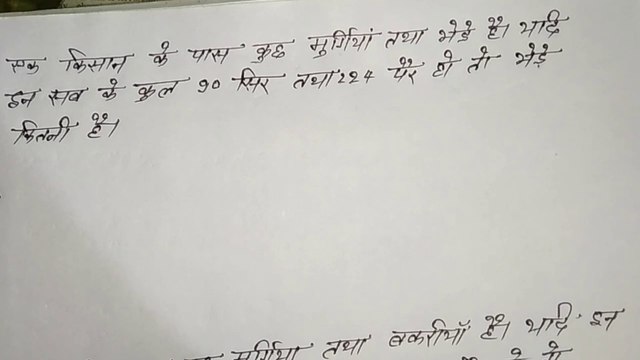 एक किसान के पास कुछ मुर्गियां तथा भेड़े है। यदि
इन सब के कुल 90 सिर तथा 224 पैर हो तो भेड़े
कितनी है।
मुर्गियां तथा बकरीयाँ है। यदि इन